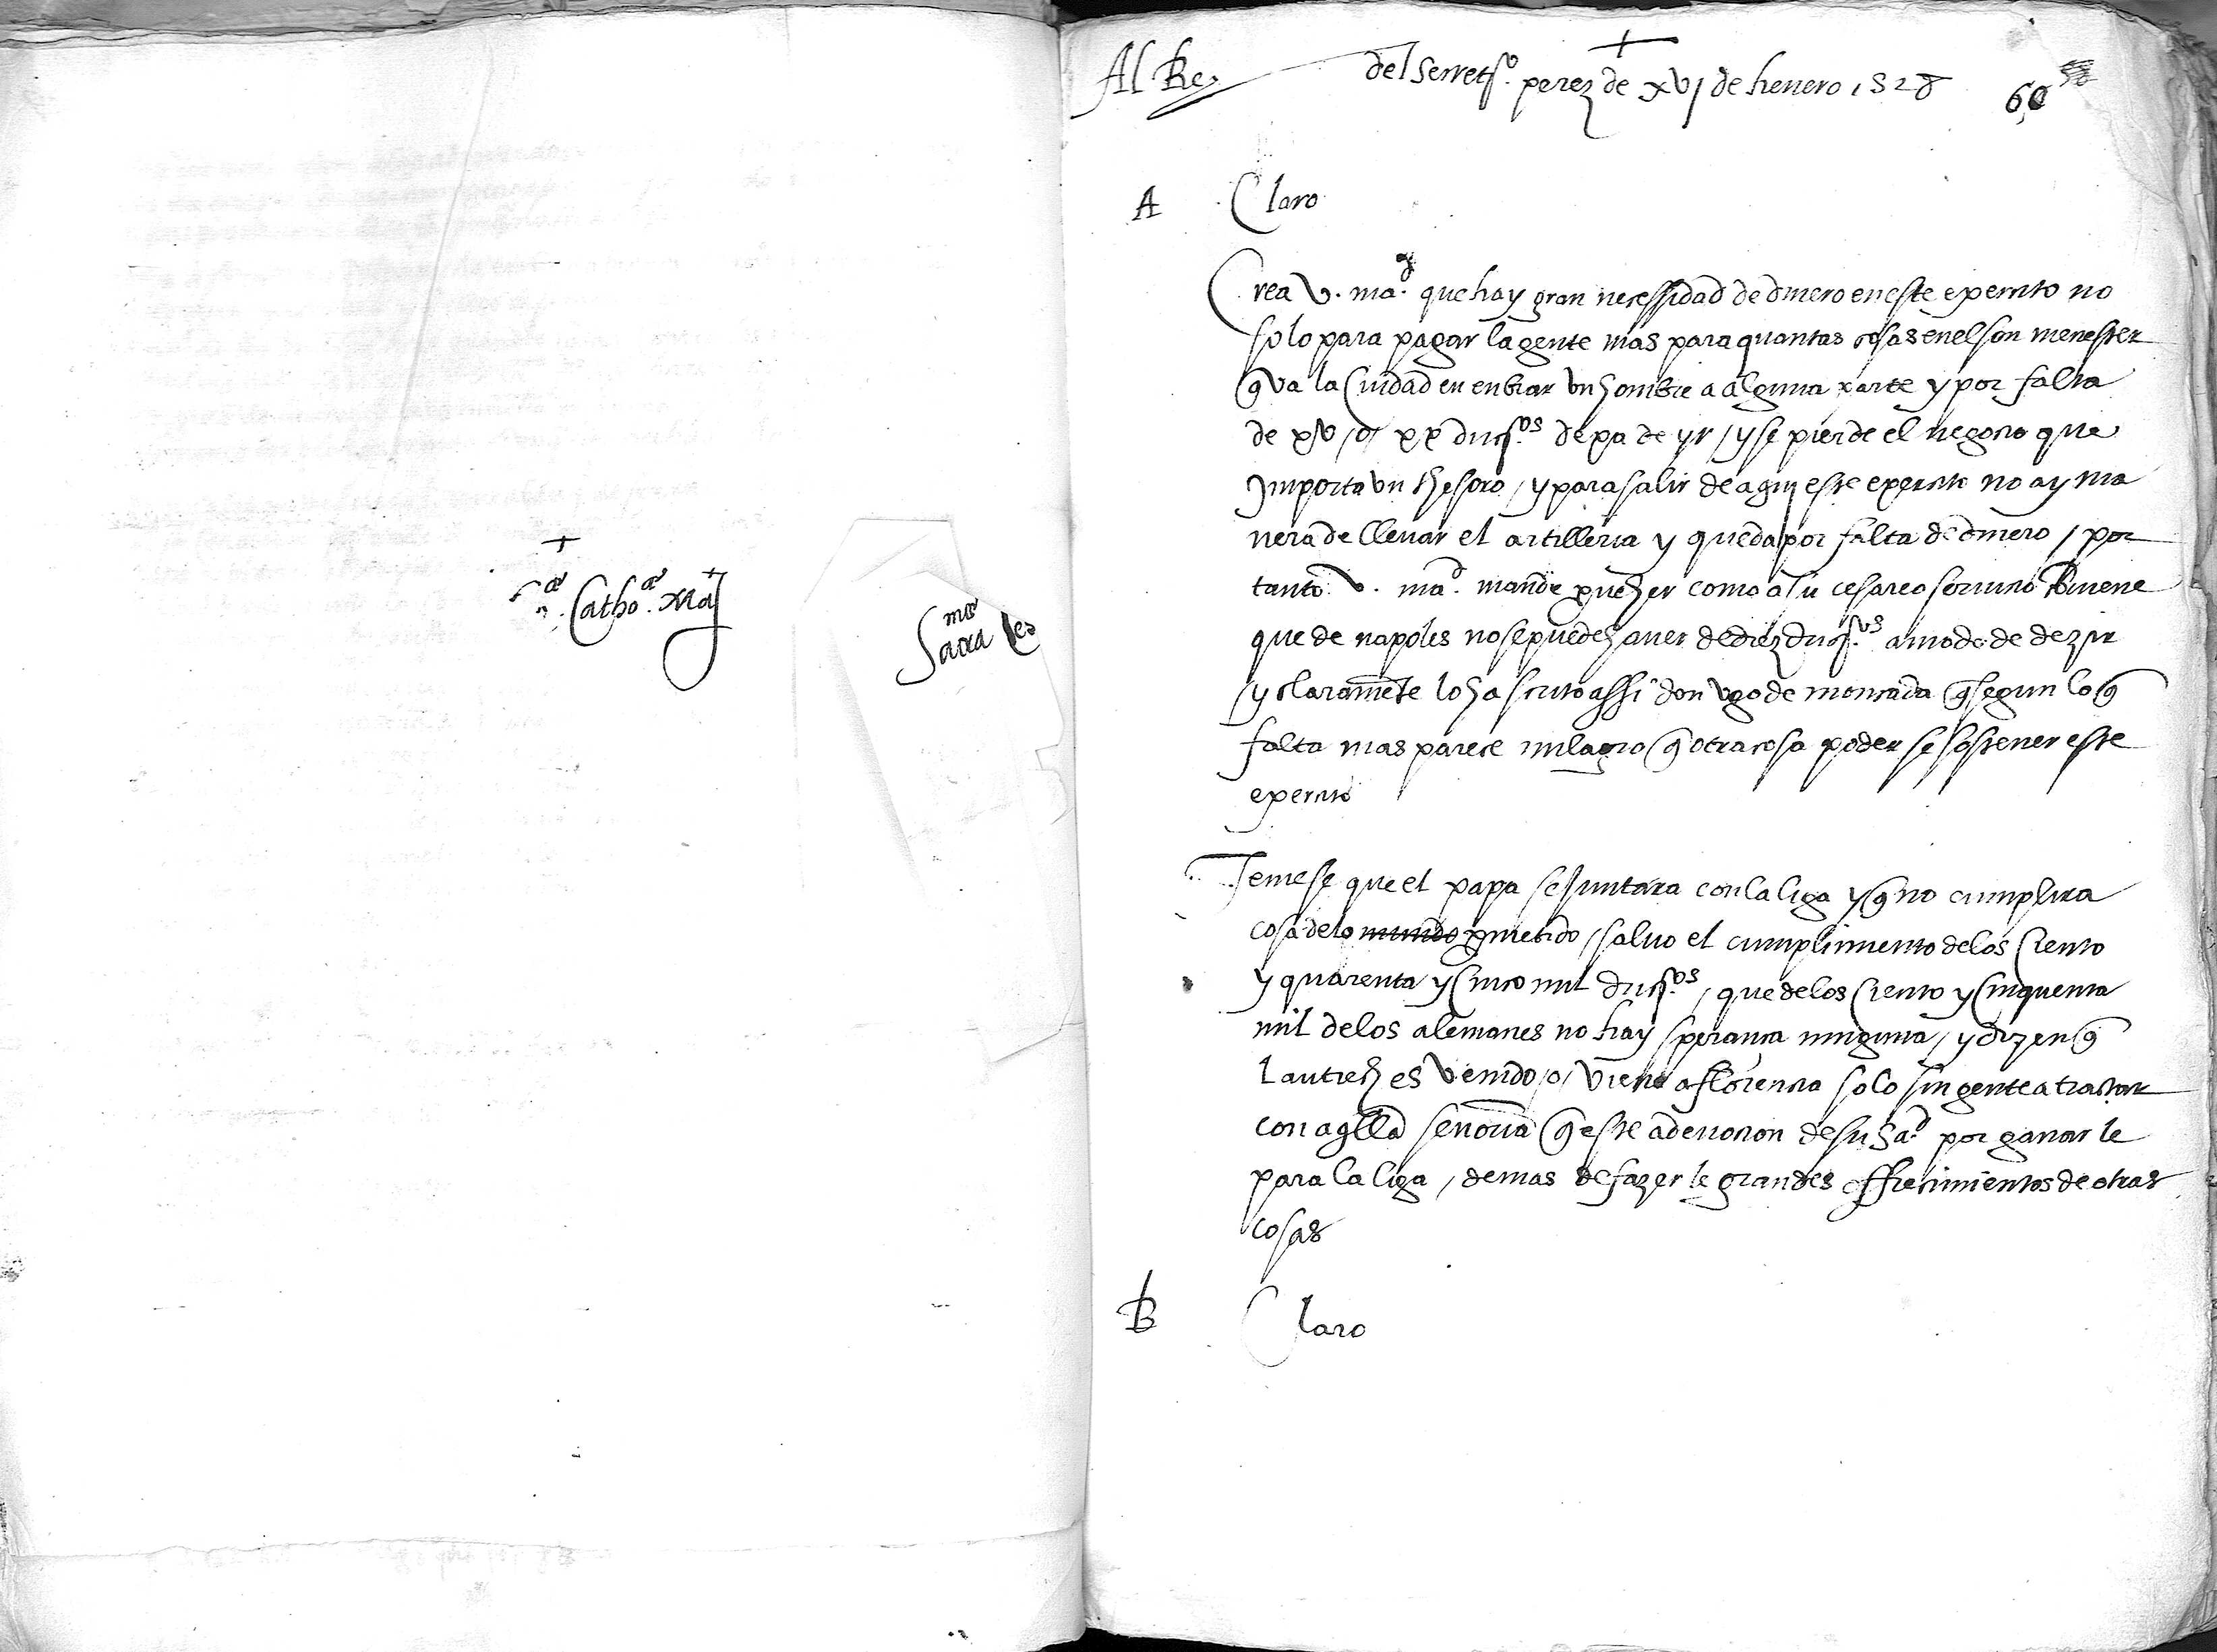 +
S. Ca. Catho. Mag.
Sacra
+
Al Rey
del secretº. perez de xvj de henero 1528
60
A
Claro
Crea v. mad. que hay gran necessidad de dinero en este exercito no
solo para pagar la gente mas para quantas cosas en el son menester
q̃ va la Cividad en enbiar vn hombre a alguna parte y por falta
de xv /o/ xx ducºs dexa de yr / y se pierde el negocio que
Importa vn thesoro / y para salir de aqui este exercito no ay ma
nera de llevar el artilleria y queda por falta de dinero / por
tanto v. mad. mande proveher como a su cesareo servicio conviene
que de napoles no se puede haver de diez ducºs a modo de dezir
/ y claramẽte lo ha scrito assi don vgo de moncada q̃ segun lo q̃
falta mas parece milagro q̃ otra cosa poder se sostener este
exercito
Temese que el papa se juntara con la liga y q̃ no cumplira
cosa de lo mundo prometido / salvo el cumplimiento de los Ciento
y quarenta y Cinco mil ducºs / que de los Ciento y Cinquenta
mil de los alemanes no hay sperança ninguna / y dizen q̃
Lautrech es venido /o/ viene a florencia solo sin gente a tractar
con aq̃lla señoria q̃ este a devocion de su Sad. por ganar le
para la liga / demas de fazer le grandes offrecimientos de otras
cosas
B
Claro